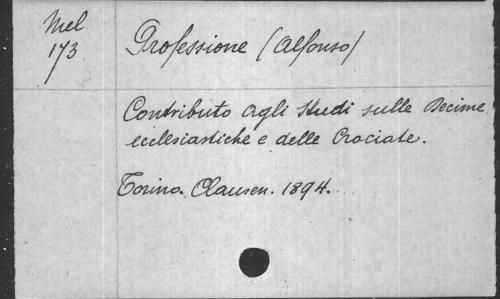 Mel
173
Professione (Alfonso)
Contributo agli Studi sulle Decime
ecclesiastiche e delle Crociate.
Torino. Clausen. 1894.